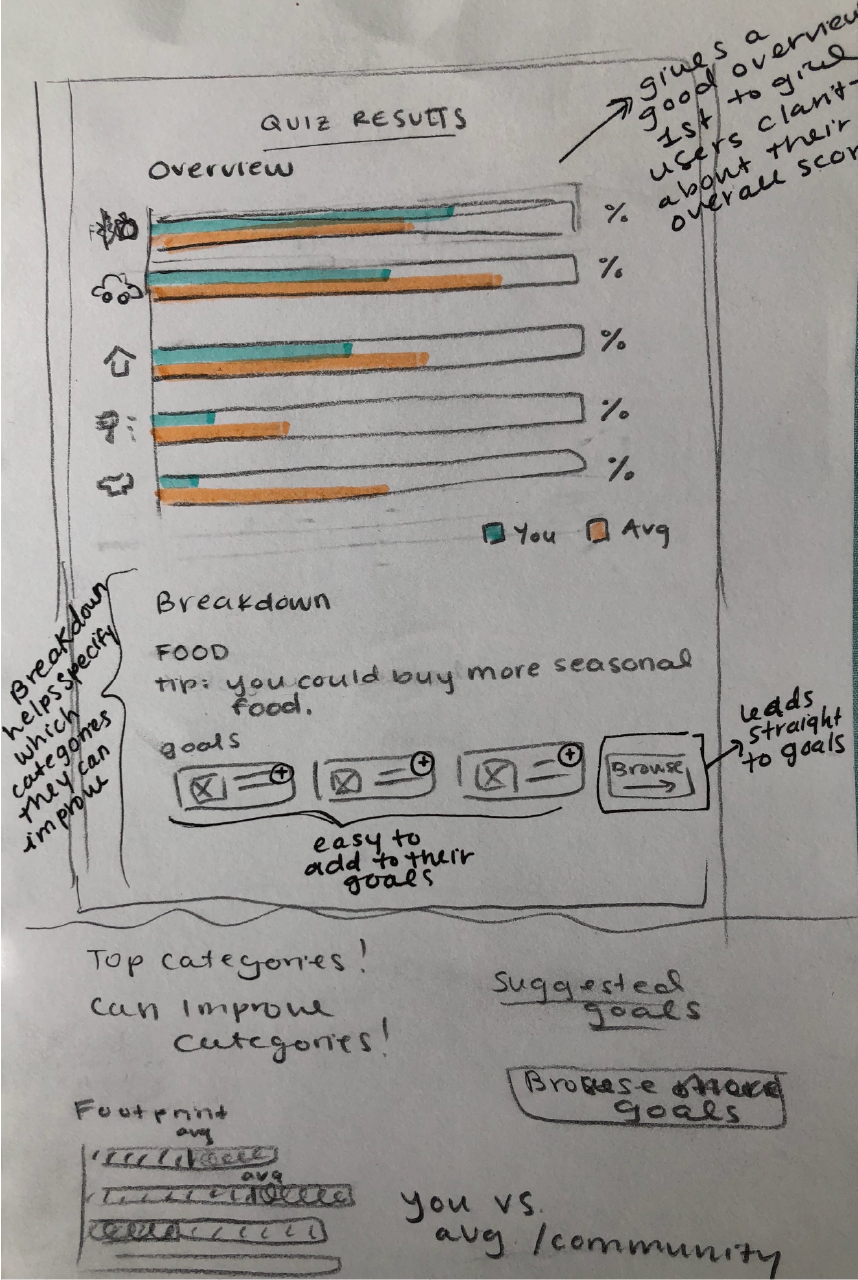 gives a
good overview
1st to give
users clarit-
about their
overall scor
QUIZ RESULTS
Overview
%
%
%
%
%
You Avg
Breakdown
helps specify
which
categories
they can
improve
Breakdown
FOOD
tip: you could buy more seasonal
food.
goals
Browse
leads
straight
to goals
easy to
add to their
goals
Top categories!
can improve
categories!
Suggested
goals
Browse
goals
Footprint
avg
avg
you vs.
avg /community